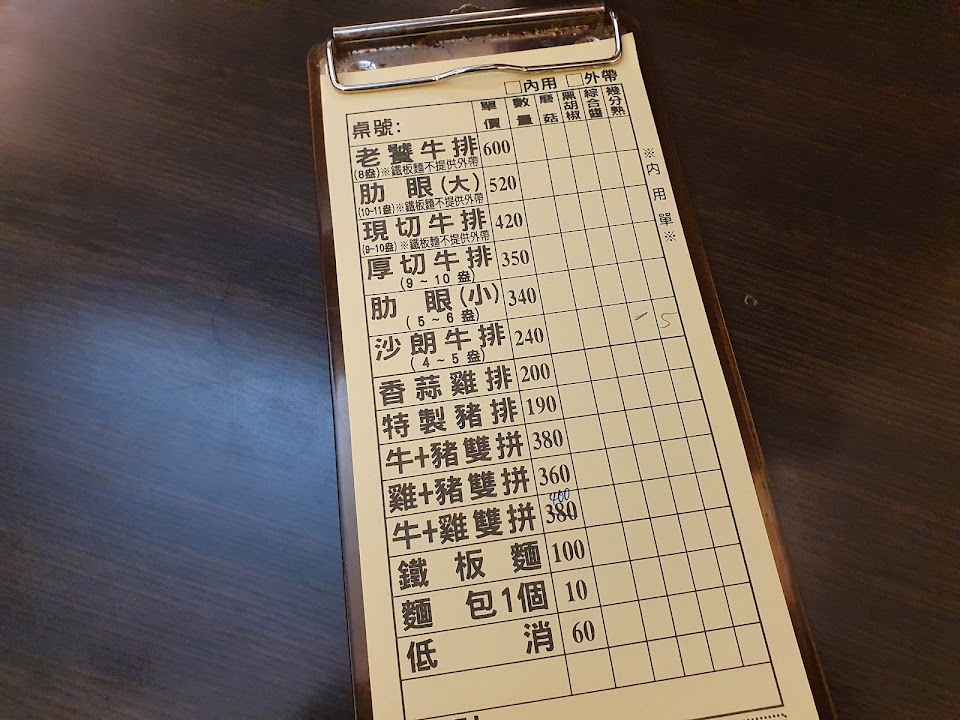 □內用 □外帶
桌號: 單價 數量 磨菇 黑胡椒 綜合醬 幾分熟
老饕牛排 600
(8盎)※鐵板麵不提供外帶
肋眼(大) 520
(10~11盎)※鐵板麵不提供外帶
現切牛排 420
(9~10盎)※鐵板麵不提供外帶
厚切牛排 350
(9~10盎)
肋眼(小) 340
(5~6盎)
沙朗牛排 240
(4~5盎)
香蒜雞排 200
特製豬排 190
牛+豬雙拼 380
雞+豬雙拼 360
400
牛+雞雙拼 380
鐵板麵 100
麵包1個 10
低消 60
※內用單※